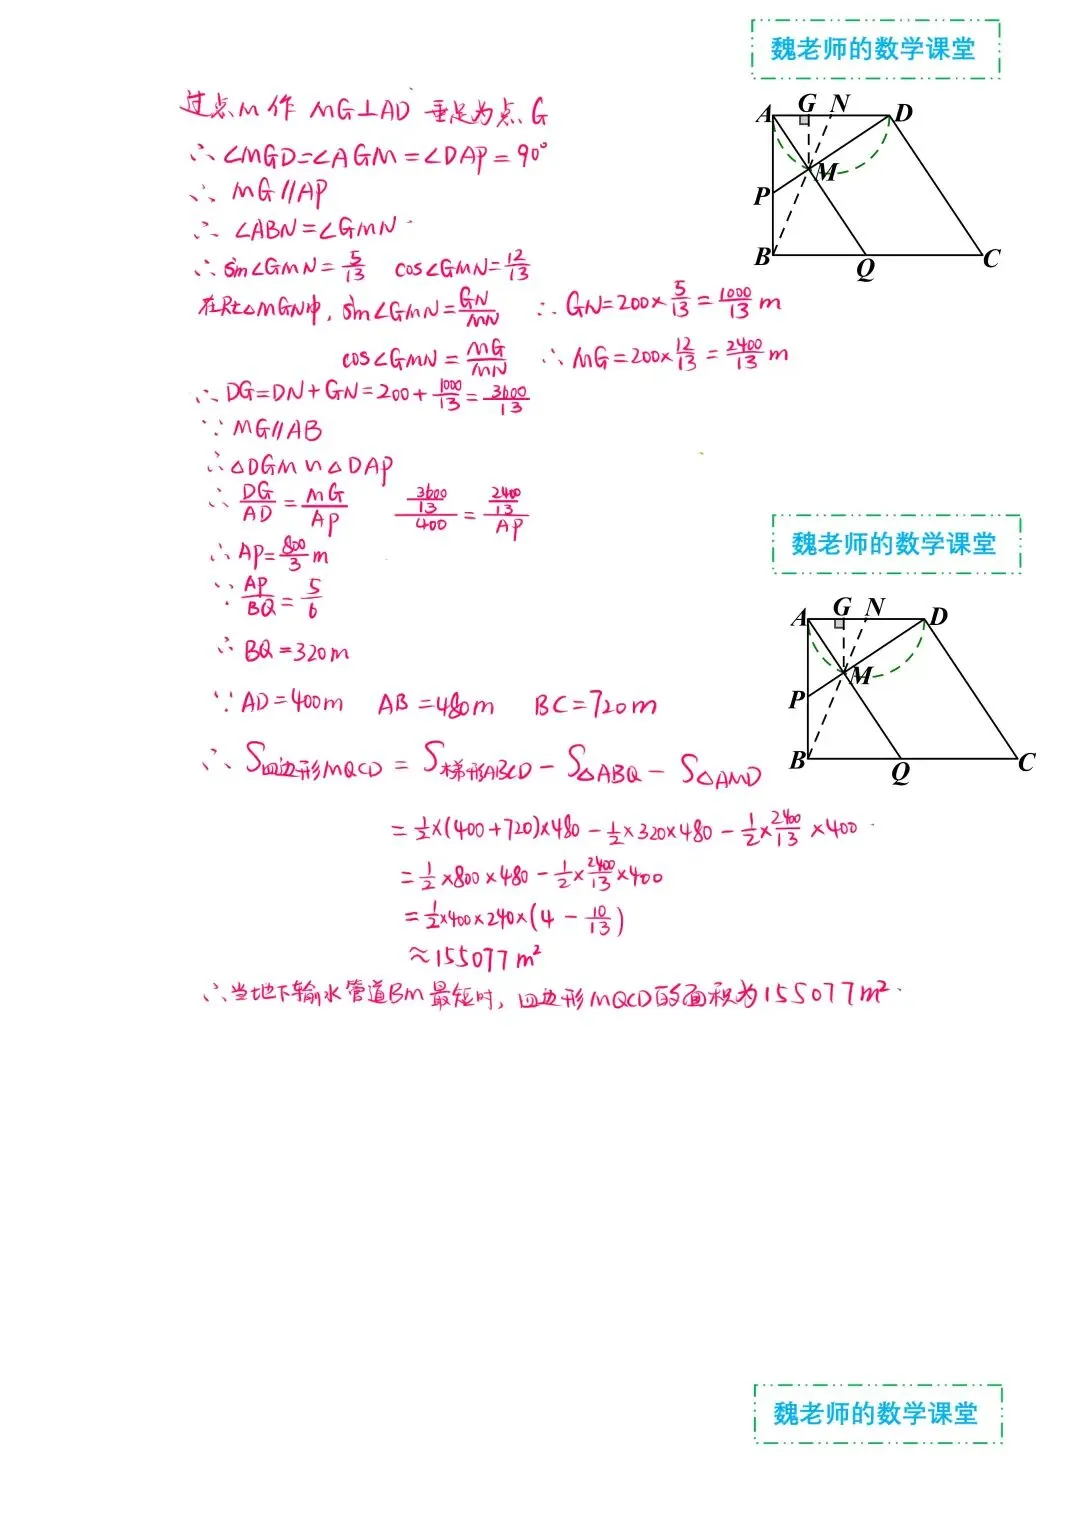 魏老师的数学课堂
过点M作 MG⊥AD 垂足为点G
∴ ∠MGD=∠AGM=∠DAP=90°
∴ MG∥AP
∴ ∠ABN=∠GMN
∴ sin∠GMN=5/13 cos∠GMN=12/13
在Rt△MGN中, sin∠GMN=GN/MN ∴ GN=200×5/13=1000/13 m
cos∠GMN=MG/MN ∴ MG=200×12/13=2400/13 m
∴ DG=DN+GN=200+1000/13=3600/13
∵ MG∥AB
∴ △DGM∽△DAP
∴ DG/AD=MG/AP (3600/13)/400=(2400/13)/AP
∴ AP=800/3 m
∵ AP/BQ=5/6
∴ BQ=320m
∵ AD=400m AB=480m BC=720m
∴ S四边形MQCD=S梯形ABCD-S△ABQ-S△AMD
=1/2×(400+720)×480-1/2×320×480-1/2×2400/13×400
=1/2×800×480-1/2×2400/13×400
=1/2×400×240×(4-10/13)
≈155077m²
∴当地下输水管道BM最短时, 四边形MQCD的面积为155077m².
A G N D
M
P
B Q C
魏老师的数学课堂
A G N D
M
P
B Q C
魏老师的数学课堂